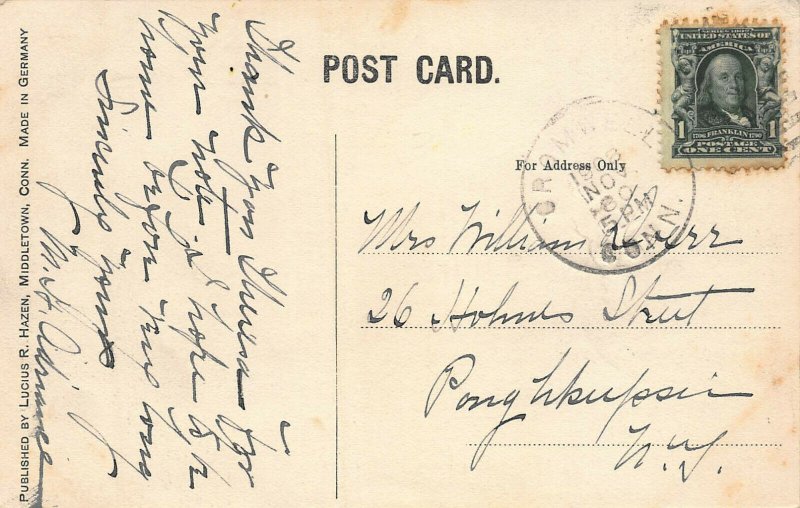 POST CARD.
For Address Only
Thank you Theresa for
your note I hope to be
home before very long
Sincerely yours
M. A. Adriance
Mrs William Kerr
26 Holmes Street
Poughkeepsie
N.Y.
SERIES 1902
UNITED STATES OF
AMERICA
1 1706 FRANKLIN 1790 1
POSTAGE
ONE CENT
CROMWELL
NOV
5 PM
CONN.
PUBLISHED BY LUCIUS R. HAZEN, MIDDLETOWN, CONN. MADE IN GERMANY